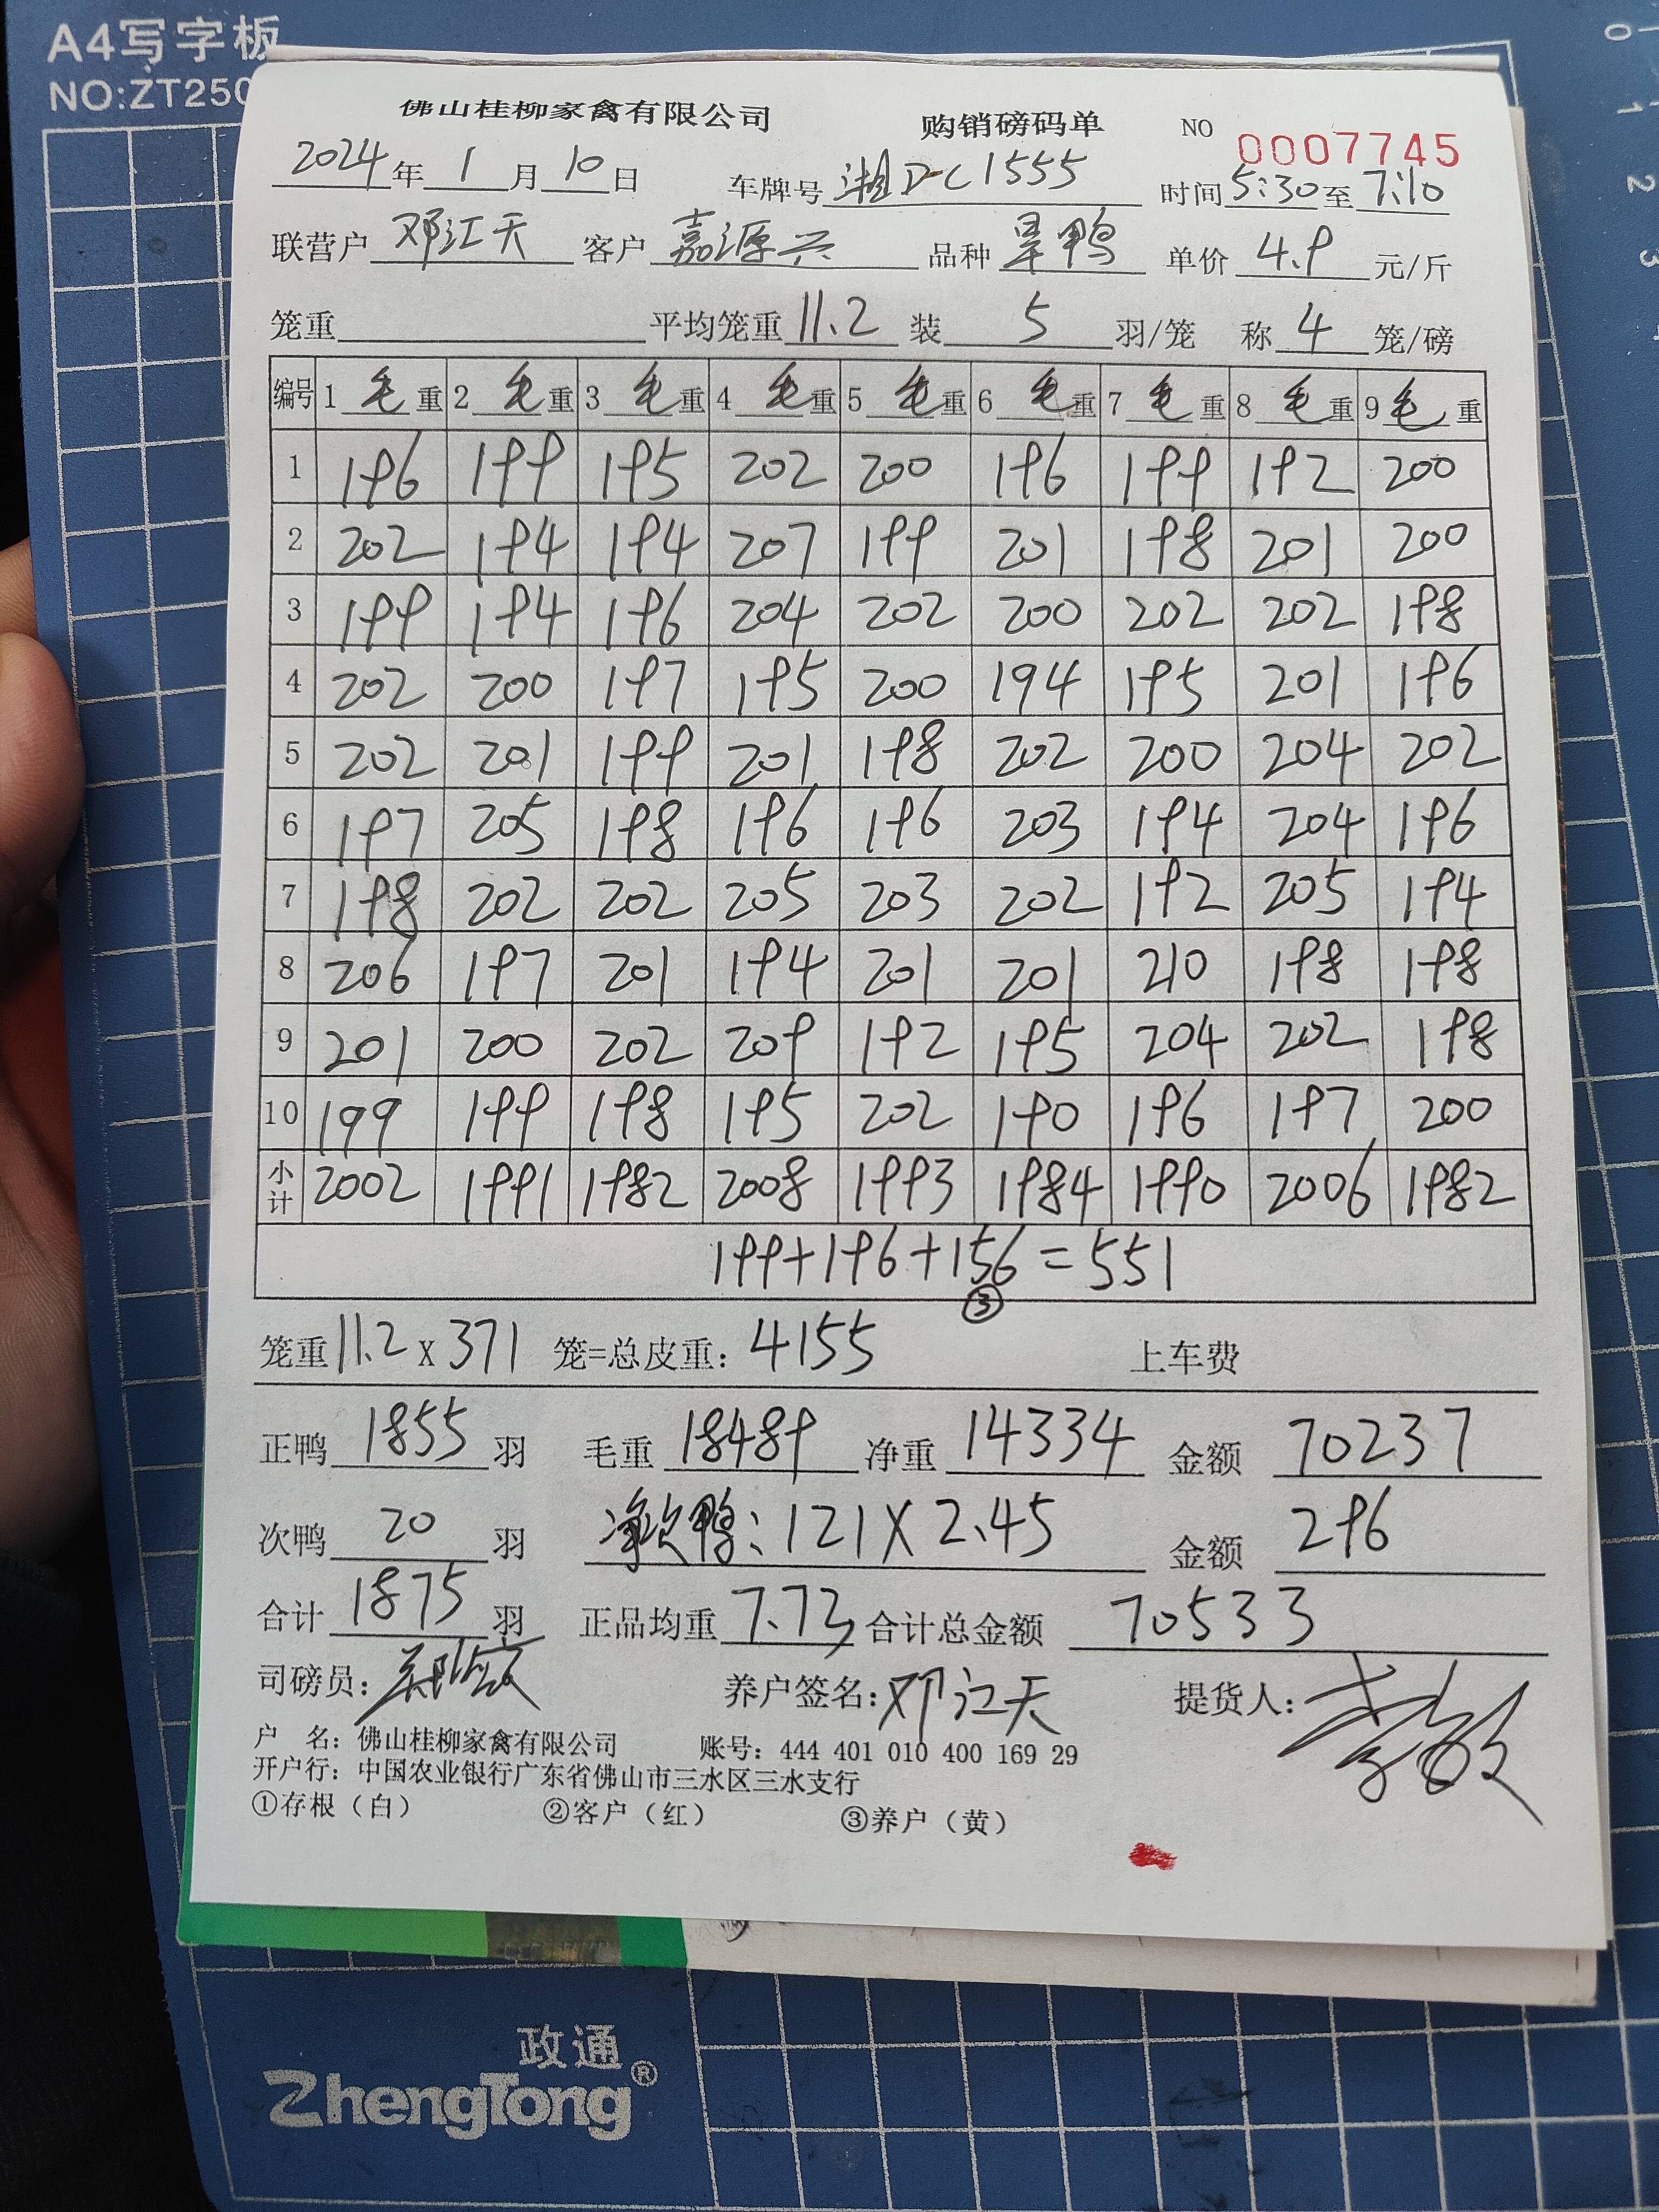 A4写字板
NO:ZT250
佛山桂柳家禽有限公司 购销磅码单 NO 0007745
2024年1月10日 车牌号 湘DC1555 时间 5:30至7:10
联营户 邓江天 客户 嘉源兴 品种 旱鸭 单价 4.9 元/斤
笼重 平均笼重 11.2 装 5 羽/笼 称 4 笼/磅
编号 1 毛重 2 毛重 3 毛重 4 毛重 5 毛重 6 毛重 7 毛重 8 毛重 9 毛重
1 196 199 195 202 200 196 199 192 200
2 202 194 194 207 199 201 198 201 200
3 199 194 196 204 202 200 202 202 198
4 202 200 197 195 200 194 195 201 196
5 202 201 199 201 198 202 200 204 202
6 197 205 198 196 196 203 194 204 196
7 198 202 202 205 203 202 192 205 194
8 206 197 201 194 201 201 210 198 198
9 201 200 202 209 192 195 204 202 198
10 199 199 198 195 202 190 196 197 200
小计 2002 1991 1982 2008 1993 1984 1990 2006 1982
199+196+156=551
③
笼重 11.2 x 371 笼=总皮重: 4155 上车费
正鸭 1855 羽 毛重 18489 净重 14334 金额 70237
次鸭 20 羽 净次鸭: 121 X 2.45 金额 296
合计 1875 羽 正品均重 7.73 合计总金额 70533
司磅员: 养户签名: 邓江天 提货人:
户 名: 佛山桂柳家禽有限公司 账号: 444 401 010 400 169 29
开户行: 中国农业银行广东省佛山市三水区三水支行
①存根（白） ②客户（红） ③养户（黄）
政通
ZhengTong®
0
1
2
3